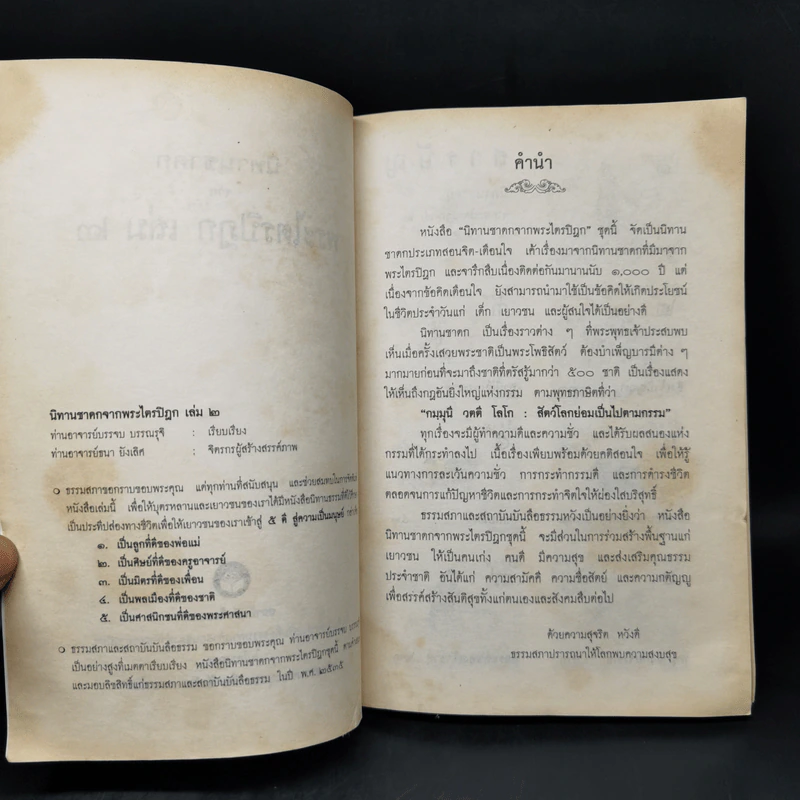 นิทานชาดกจากพระไตรปิฎก เล่ม ๒
ท่านอาจารย์บรรจบ บรรณรุจิ : เรียบเรียง
ท่านอาจารย์ธนา ยังเลิศ : จิตรกรผู้สร้างสรรค์ภาพ
ธรรมสภาขอกราบขอบพระคุณ แด่ทุกท่านที่สนับสนุน และช่วยสมทบในการจัดพิมพ์
หนังสือเล่มนี้ เพื่อให้บุตรหลานและเยาวชนของเราได้มีหนังสือนิทานธรรมที่ดีไว้ศึกษา
เป็นประทีปส่องทางชีวิตเพื่อให้เยาวชนของเราเข้าสู่ ๕ ดี สู่ความเป็นมนุษย์
๑. เป็นลูกที่ดีของพ่อแม่
๒. เป็นศิษย์ที่ดีของครูอาจารย์
๓. เป็นมิตรที่ดีของเพื่อน
๔. เป็นพลเมืองที่ดีของชาติ
๕. เป็นศาสนิกชนที่ดีของพระศาสนา
ธรรมสภาและสถาบันบันลือธรรม ขอกราบขอบพระคุณ ท่านอาจารย์บรรจบ
เป็นอย่างสูงที่เมตตาเรียบเรียง หนังสือนิทานชาดกจากพระไตรปิฎกชุดนี้
และมอบลิขสิทธิ์แก่ธรรมสภาและสถาบันบันลือธรรม ในปี พ.ศ. ๒๕๓๕
คำนำ
หนังสือ "นิทานชาดกจากพระไตรปิฎก" ชุดนี้ จัดเป็นนิทาน
ชาดกประเภทสอนจิต-เตือนใจ เค้าเรื่องมาจากนิทานชาดกที่มีมาจาก
พระไตรปิฎก และจารึกสืบเนื่องติดต่อกันมานานนับ ๑,๐๐๐ ปี แต่
เนื่องจากข้อคิดเตือนใจ ยังสามารถนำมาใช้เป็นข้อคิดให้เกิดประโยชน์
ในชีวิตประจำวันแก่ เด็ก เยาวชน และผู้สนใจได้เป็นอย่างดี
นิทานชาดก เป็นเรื่องราวต่าง ๆ ที่พระพุทธเจ้าประสบพบ
เห็นเมื่อครั้งเสวยพระชาติเป็นพระโพธิสัตว์ ต้องบำเพ็ญบารมีต่าง ๆ
มากมายก่อนที่จะมาถึงชาติที่ตรัสรู้มากว่า ๕๐๐ ชาติ เป็นเรื่องแสดง
ให้เห็นถึงกฎอันยิ่งใหญ่แห่งกรรม ตามพุทธภาษิตที่ว่า
"กมฺมุนี วตตี โลโก : สัตว์โลกย่อมเป็นไปตามกรรม"
ทุกเรื่องจะมีผู้ทำความดีและความชั่ว และได้รับผลสนองแห่ง
กรรมที่ได้กระทำลงไป เนื้อเรื่องเพียบพร้อมด้วยคติสอนใจ เพื่อให้รู้
แนวทางการละเว้นความชั่ว การกระทำกรรมดี และการดำรงชีวิต
ตลอดจนการแก้ปัญหาชีวิตและการกระทำจิตใจให้ผ่องใสบริสุทธิ์
ธรรมสภาและสถาบันบันลือธรรมหวังเป็นอย่างยิ่งว่า หนังสือ
นิทานชาดกจากพระไตรปิฎกชุดนี้ จะมีส่วนในการร่วมสร้างพื้นฐานแก่
เยาวชน ให้เป็นคนเก่ง คนดี มีความสุข และส่งเสริมคุณธรรม
ประจำชาติ อันได้แก่ ความสามัคคี ความซื่อสัตย์ และความกตัญญู
เพื่อสรรค์สร้างสันติสุขทั้งแก่ตนเองและสังคมสืบต่อไป
ด้วยความสุจริต หวังดี
ธรรมสภาปรารถนาให้โลกพบความสงบสุข